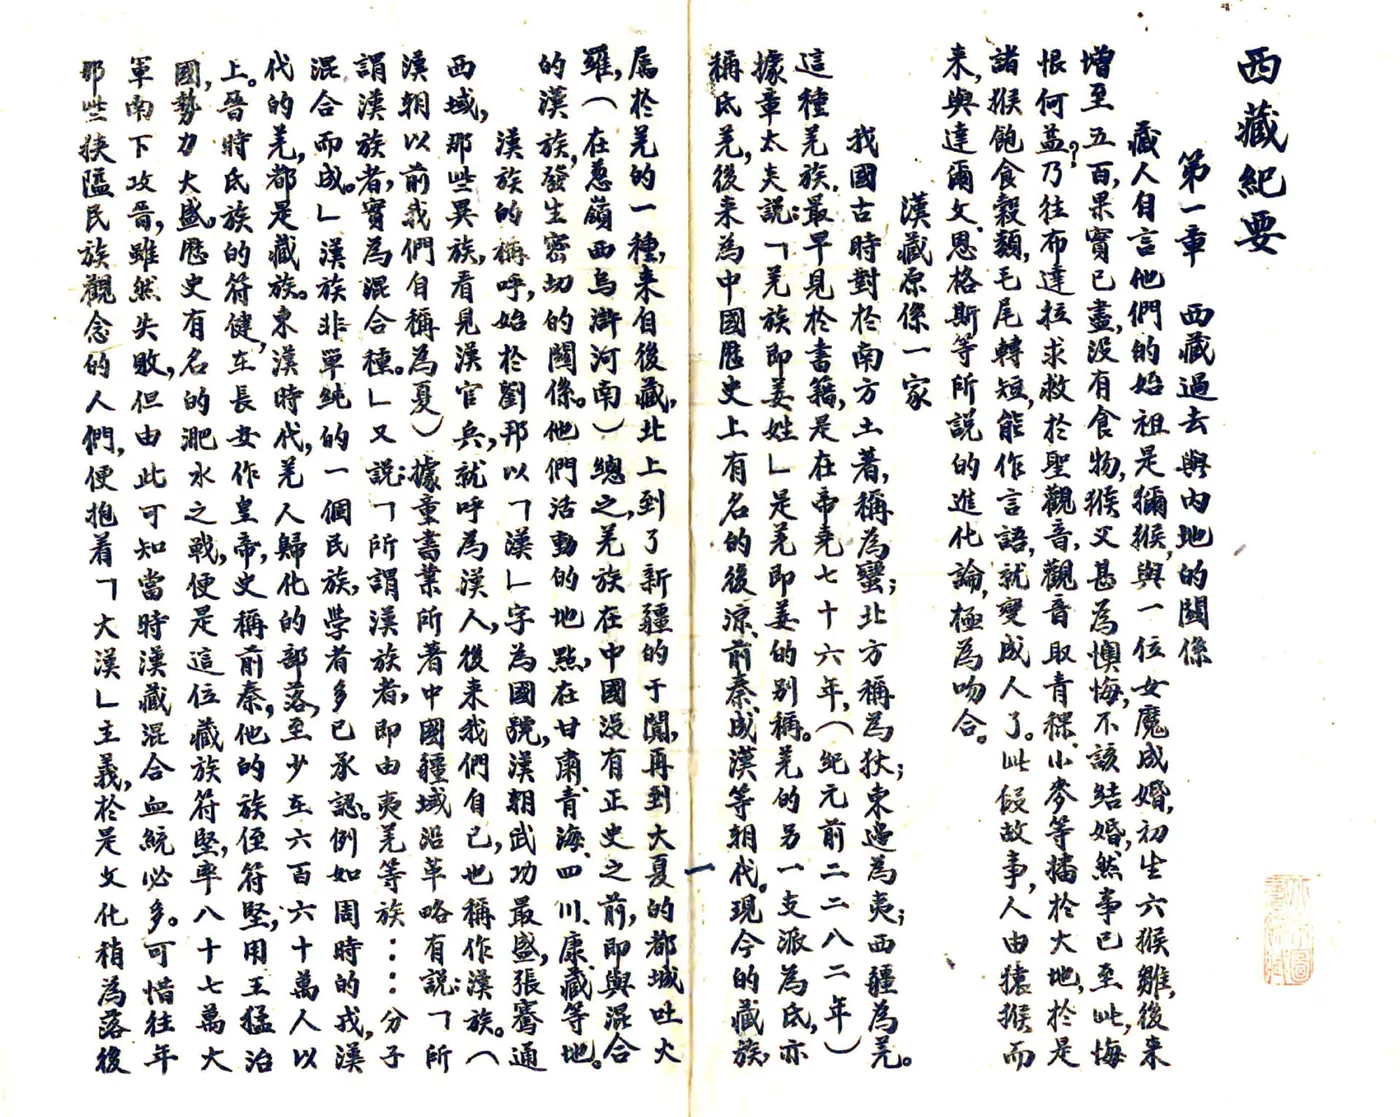 西藏紀要
第一章　西藏過去與內地的關係
藏人自言他們的始祖是獼猴，與一位女魔成婚，初生六猴雛，後來
增至五百，果實已盡，没有食物，猴父甚為懊悔，不該結婚，然事已至此，悔
恨何益？乃往布達拉求救於聖觀音，觀音取青稞、小麥等播於大地，於是
諸猴飽食穀類，毛尾轉短，能作言語，就變成人了。此段故事，人由猿猴而
来，與達爾文、恩格斯等所説的進化論，極為吻合。
漢藏原係一家
我國古時對於南方土著，稱為蠻；北方稱為狄；東邊為夷；西疆為羌。
這種羌族，最早見於書籍，是在帝堯七十六年，（紀元前二二八二年）
據章太炎説：「羌族即姜姓」是羌即姜的别稱。羌的另一支派為氐，亦
稱氐羌，後来為中國歷史上有名的後涼、前秦、成漢等朝代。現今的藏族，
一
屬於羌的一種，来自後藏，北上到了新疆的于闐，再到大夏的都城吐火
羅，（在葱嶺西烏滸河南）總之，羌族在中國没有正史之前，即與混合
的漢族，發生密切的關係。他們活動的地點，在甘肅、青海、四川、康藏等地。
漢族的稱呼，始於劉邦以「漢」字為國號，漢朝武功最盛，張騫通
西域，那些異族，看見漢官兵，就呼為漢人，後来我們自己，也稱作漢族。（
漢朝以前我們自稱為夏）據童書業所著中國疆域沿革略有説：「所
謂漢族者，實為混合種。」又説：「所謂漢族者，即由夷羌等族⋯⋯分子
混合而成。」漢族非單純的一個民族，學者多已承認。例如周時的戎，漢
代的羌，都是藏族。東漢時代，羌人歸化的部落，至少在六百六十萬人以
上。晉時氐族的符健，在長安作皇帝，史稱前秦，他的族侄符堅，用王猛治
國，勢力大盛，歷史有名的淝水之戰，便是這位藏族符堅，率八十七萬大
軍南下攻晉，雖然失敗，但由此可知當時漢藏混合血統必多。可惜往年
那些狹隘民族觀念的人們，便抱着「大漢」主義，於是文化稍為落後